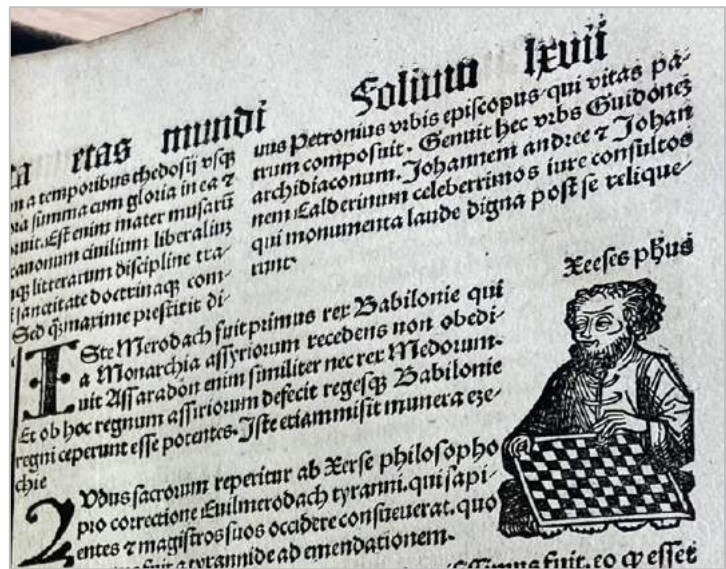 etas mundi Folium lxvii
a temporibus thedosij vsqꝫ
summa cum gloria in ea ⁊
Est enim mater musarū
canonum ciuilium liberaliuꝫ
litterarum discipline tra-
sanctitate doctrinaqꝫ com-
Sed qꝫ maxime prestitit di-
uus Petronius vrbis episcopus qui vitas pa-
trum composuit. Genuit hec vrbs Guidoneꝫ
archidiaconum. Johannem andree ⁊ Johan
nem Calderinum celeberrimos iure consultos
qui monumenta laude digna post se relique-
runt.
Xerses ph̄us
ISte Merodach fuit primus rex Babilonie qui
a Monarchia assyriorum recedens non obedi-
uit Assaradon enim similiter nec rex Medorum.
Et ob hoc regnum assiriorum defecit regesqꝫ Babilonie
regni ceperunt esse potentes. Iste etiam misit munera eze-
chie
LVdus sacrorum reperitur ab Xerse philosopho
pro correctione Euilmerodach tyranni. qui sapi-
entes ⁊ magistros suos occidere consueuerat. quo
fuit a tyrannide ad emendationem.
fuit. eo ꝙ esset